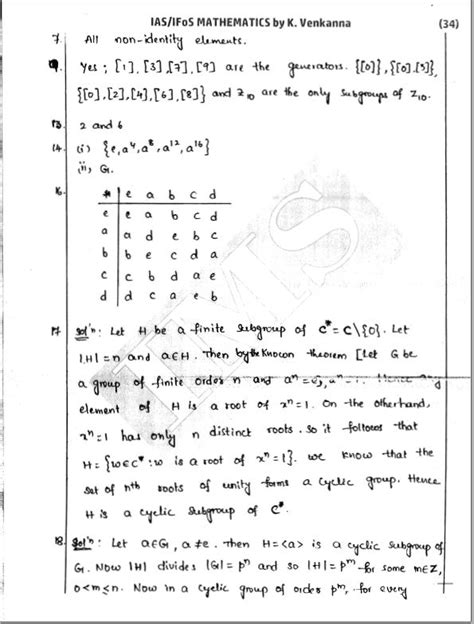 IAS/IFoS MATHEMATICS by K. Venkanna (34)
7. All non-identity elements.
9. Yes ; [1], [3], [7], [9] are the generators. {[0]}, {[0],[5]},
{[0],[2],[4],[6],[8]} and Z10 are the only subgroups of Z10.
13. 2 and 6
14. (i) {e, a⁴, a⁸, a¹², a¹⁶}
(ii) G.
16. * e a b c d
e e a b c d
a a d e b c
b b e c d a
c c b d a e
d d c a e b
IMS
17 Sol'n: Let H be a finite subgroup of C* = C\{0}. Let
|H|=n and a∈H. Then by the known theorem [Let G be
a group of finite order n and aⁿ=e], aⁿ=1. Hence any
element of H is a root of xⁿ=1. On the otherhand,
xⁿ=1 has only n distinct roots. So it follows that
H={w∈C*: w is a root of xⁿ=1}. We know that the
set of nth roots of unity forms a cyclic group. Hence
H is a cyclic subgroup of C*.
18. Sol'n: Let a∈G, a≠e. Then H=<a> is a cyclic subgroup of
G. Now |H| divides |G|=pⁿ and so |H|=pᵐ for some m∈Z,
0<m≤n. Now in a cyclic group of order pᵐ, for every